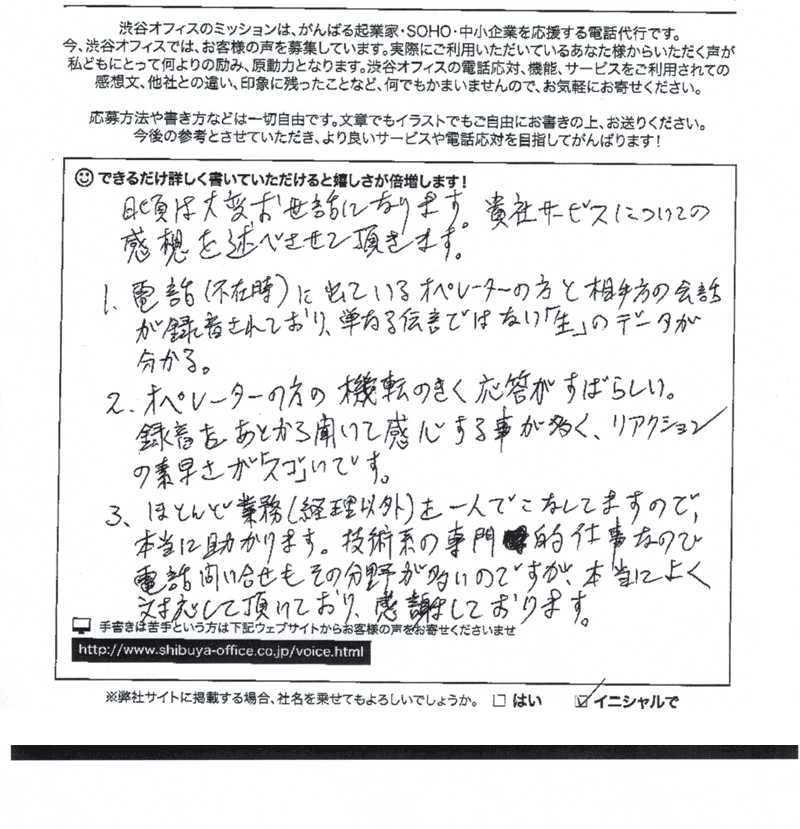 渋谷オフィスのミッションは、がんばる起業家・SOHO・中小企業を応援する電話代行です。
今、渋谷オフィスでは、お客様の声を募集しています。実際にご利用いただいているあなた様からいただく声が
私どもにとって何よりの励み、原動力となります。渋谷オフィスの電話応対、機能、サービスをご利用されての
感想文、他社との違い、印象に残ったことなど、何でもかまいませんので、お気軽にお寄せください。
応募方法や書き方などは一切自由です。文章でもイラストでもご自由にお書きの上、お送りください。
今後の参考とさせていただき、より良いサービスや電話応対を目指してがんばります！
できるだけ詳しく書いていただけると嬉しさが倍増します！
日頃は大変お世話になります。貴社サービスについての
感想を述べさせて頂きます。
1. 電話(不在時)に出ているオペレーターの方と相手方の会話
が録音されており、単なる伝言ではない「生」のデータが
分かる。
2. オペレーターの方の機転のきく応答がすばらしい。
録音をあとから聞いて感心する事が多く、リアクション
の素早さが「スゴ」いです。
3、ほとんど業務(経理以外)を一人でこなしてますので、
本当に助かります。技術系の専門的仕事なので
電話問い合せもその分野が多いのですが、本当によく
対応して頂いており、感謝しております。
手書きは苦手という方は下記ウェブサイトからお客様の声をお寄せくださいませ
http://www.shibuya-office.co.jp/voice.html
※弊社サイトに掲載する場合、社名を乗せてもよろしいでしょうか。 □ はい ☑ イニシャルで